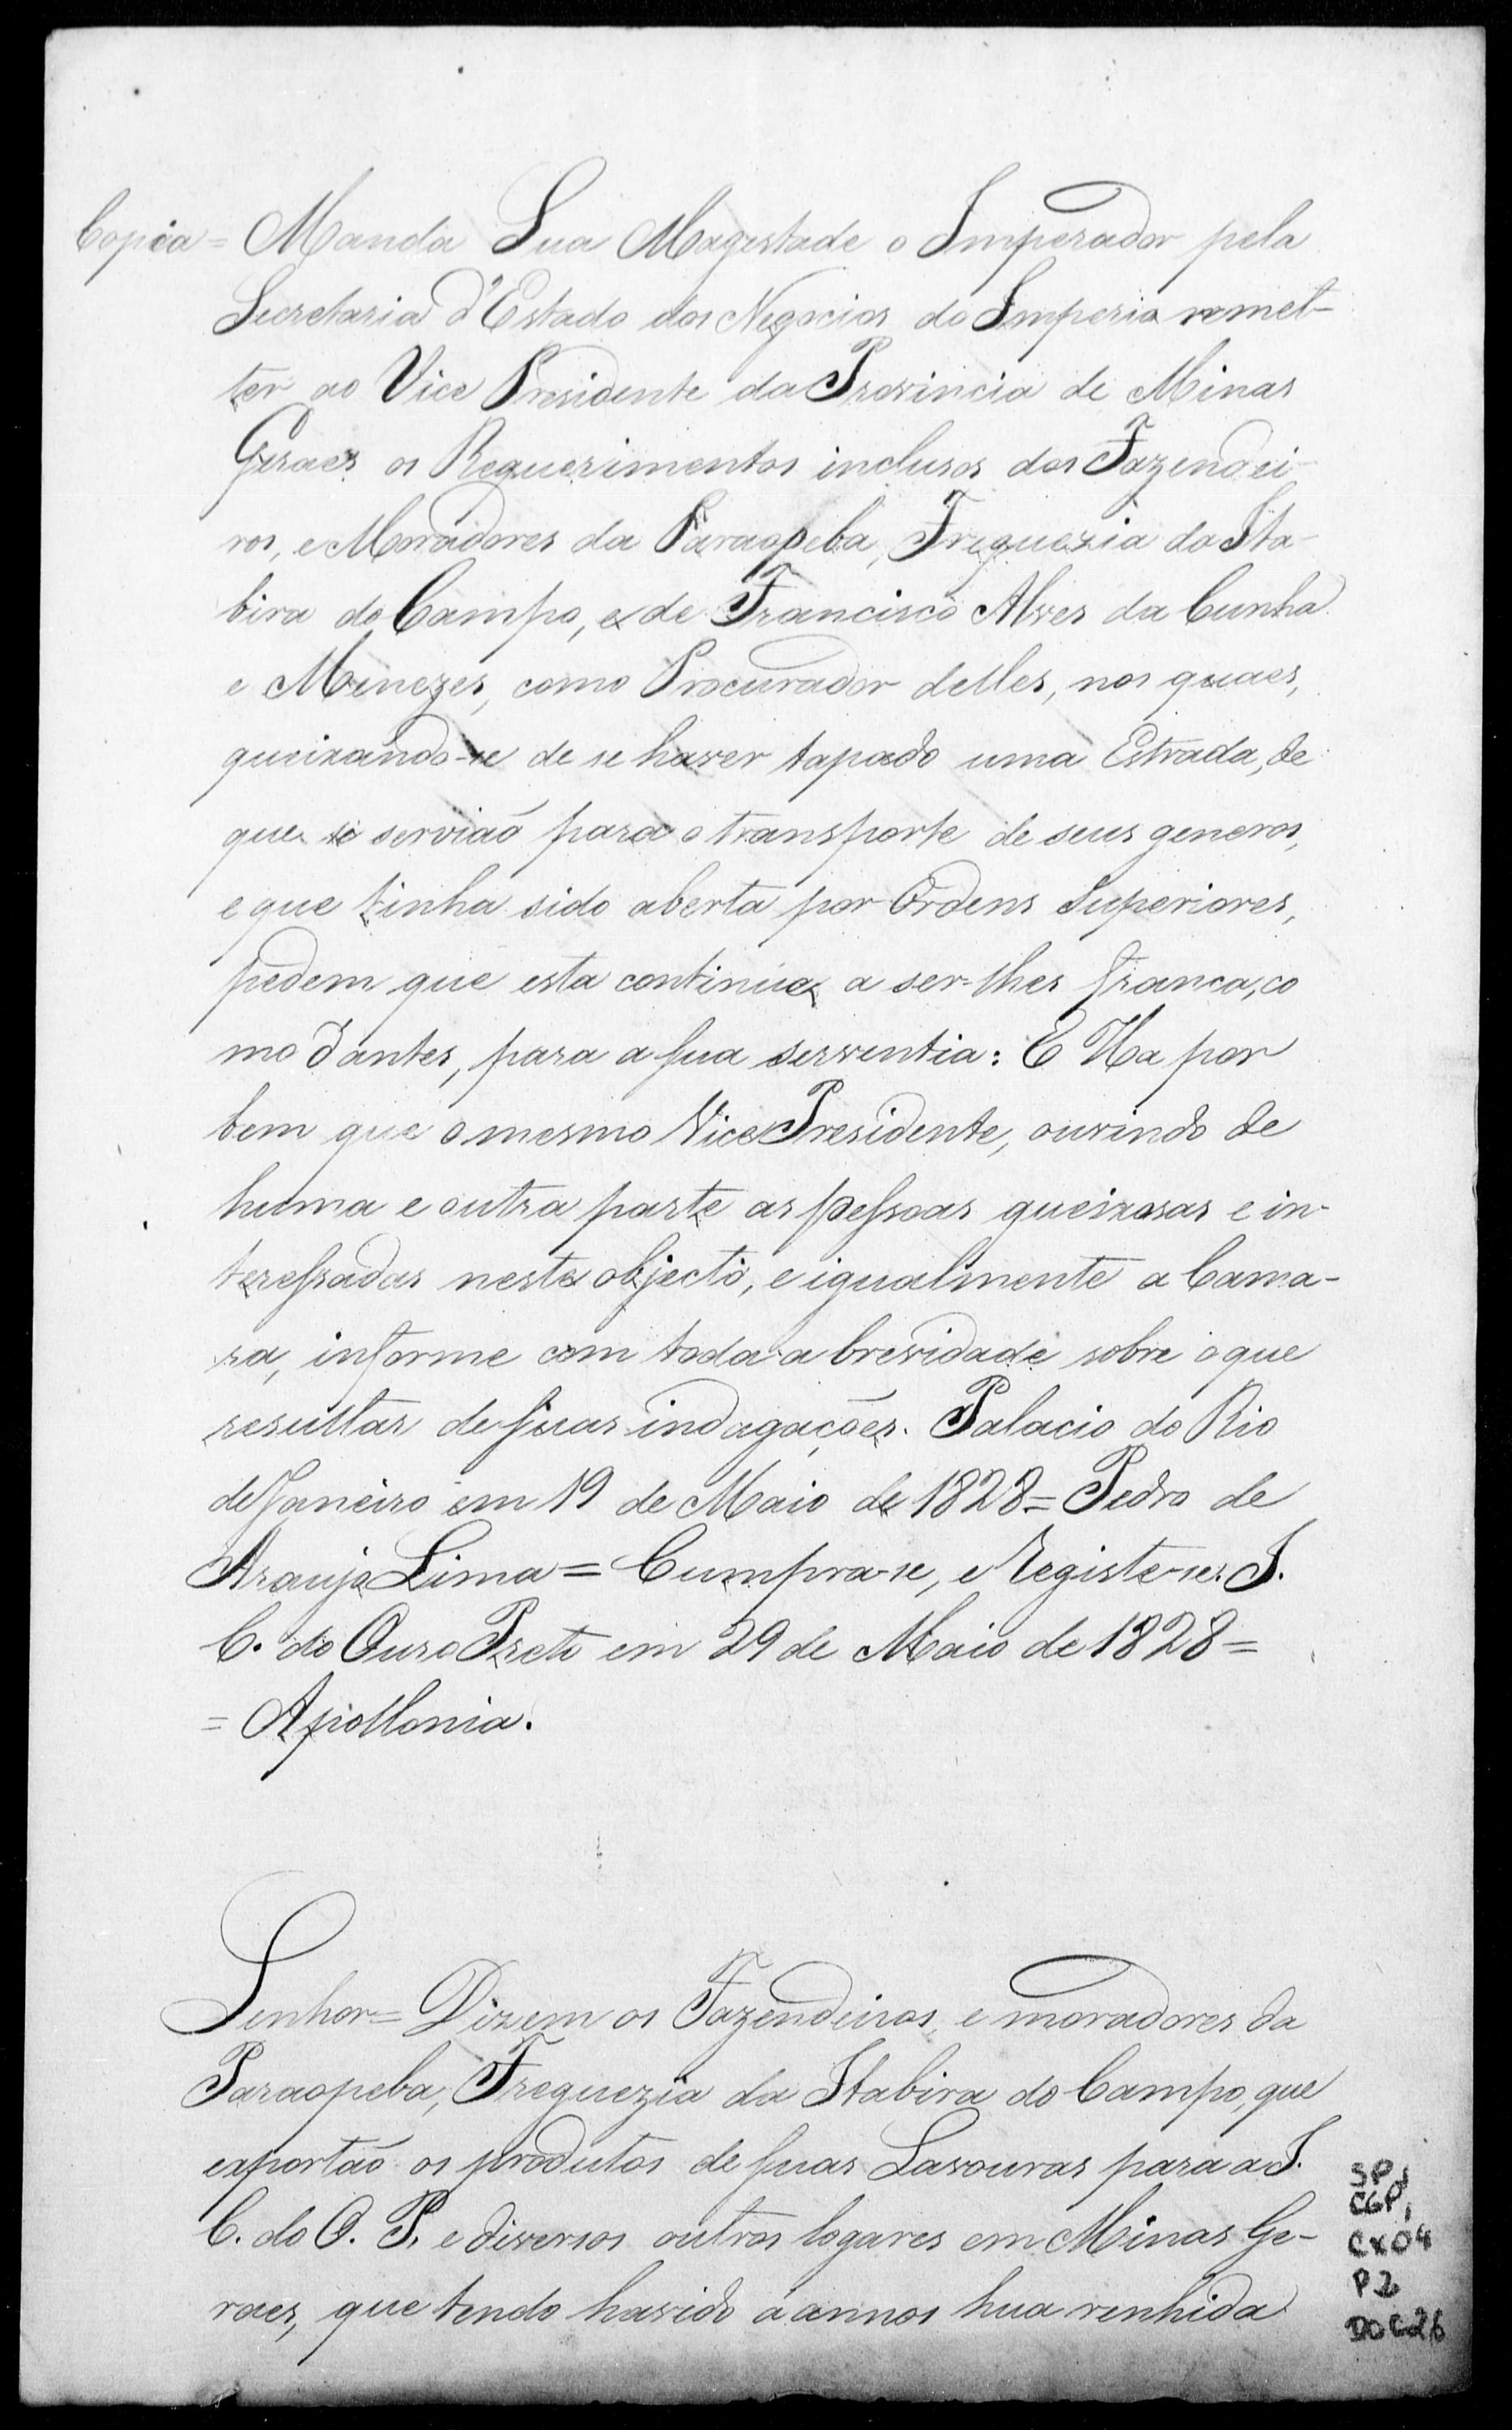 Copia = Manda Sua Magestade o Imperador pela
Secretaria d'Estado dos Negocios do Imperio remet-
ter ao Vice Presidente da Provincia de Minas
Geraes os Requerimentos inclusos dos Fazendei-
ros, e Moradores da Paraopeba, Freguezia da Ita-
bira do Campo, e de Francisco Alves da Cunha
e Menezes, como Procurador delles, nos quaes,
queixando-se de se haver tapado uma Estrada, de
que se serviaõ para o transporte de seus generos,
e que tinha sido aberta por Ordens Superiores,
pedem que esta continúe a ser-lhes franca, co
mo d'antes, para a sua serventia: E Ha por
bem que o mesmo Vice Presidente, ouvindo de
huma e outra parte as pessoas queixosas e in-
teressadas neste objecto, e igualmente a Cama-
ra, informe com toda a brevidade sobre o que
resultar de suas indagações. Palacio do Rio
de Janeiro em 19 de Maio de 1828 = Pedro de
Araujo Lima = Cumpra-se, e Registe-se. I.
C. do Ouro Preto em 29 de Maio de 1828 =
= Apollonia.
Senhor = Dizem os Fazendeiros, e moradores da
Paraopeba, Freguezia da Itabira do Campo, que
exportaõ os produtos de suas Lavouras para a I.
C. do O. P. e diversos outros logares em Minas Ge-
raes, que tendo havido á annos hua renhida
SP,
CGP,
Cx04
P2
DOC26